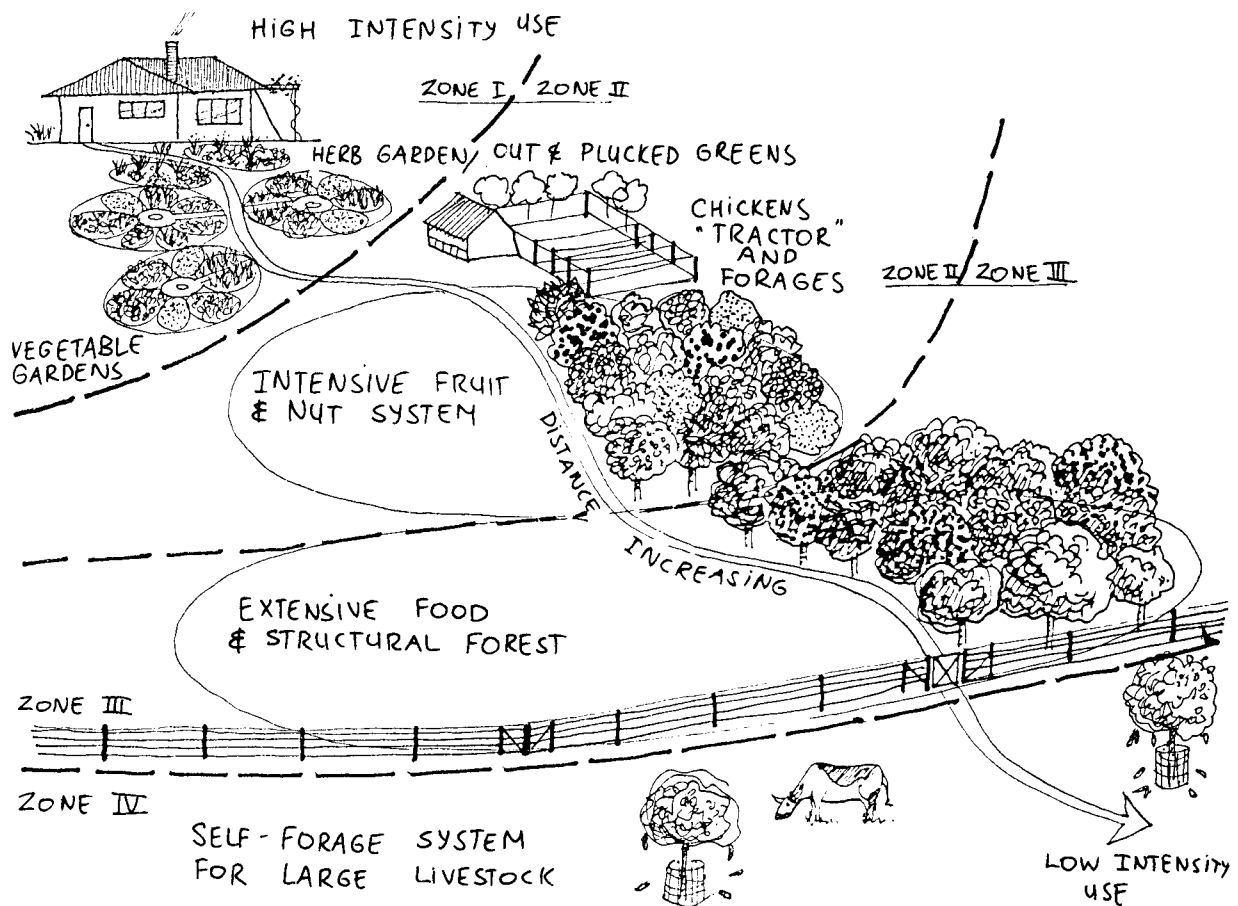 HIGH INTENSITY USE
ZONE I ZONE II
HERB GARDEN, OUT & PLUCKED GREENS
CHICKENS
"TRACTOR"
AND
FORAGES
ZONE II ZONE III
VEGETABLE
GARDENS
INTENSIVE FRUIT
& NUT SYSTEM
DISTANCE
INCREASING
EXTENSIVE FOOD
& STRUCTURAL FOREST
ZONE III
ZONE IV
SELF-FORAGE SYSTEM
FOR LARGE LIVESTOCK
LOW INTENSITY
USE